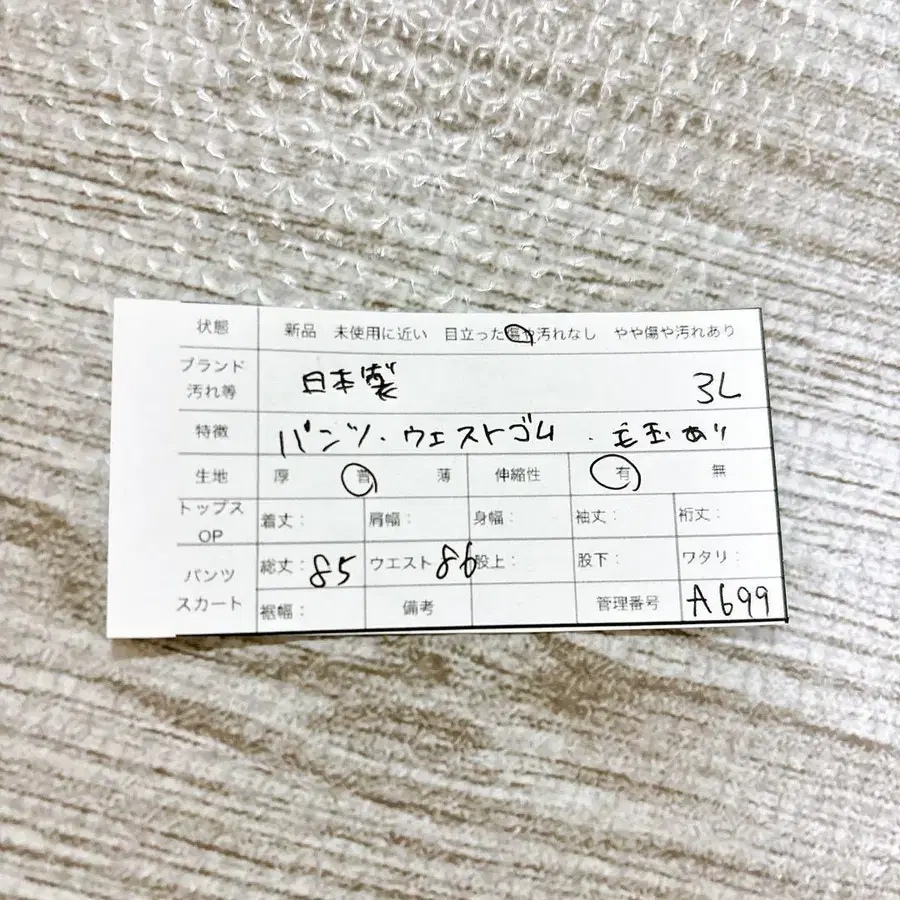 状態 新品 未使用に近い 目立った傷や汚れなし やや傷や汚れあり
ブランド
汚れ等 日本製 3L
特徴 パンツ・ウエストゴム・毛玉あり
生地 厚 普 薄 伸縮性 有 無
トップス
OP 着丈: 肩幅: 身幅: 袖丈: 裄丈:
パンツ
スカート 総丈: 85 ウエスト 86 股上: 股下: ワタリ:
裾幅: 備考 管理番号 A699